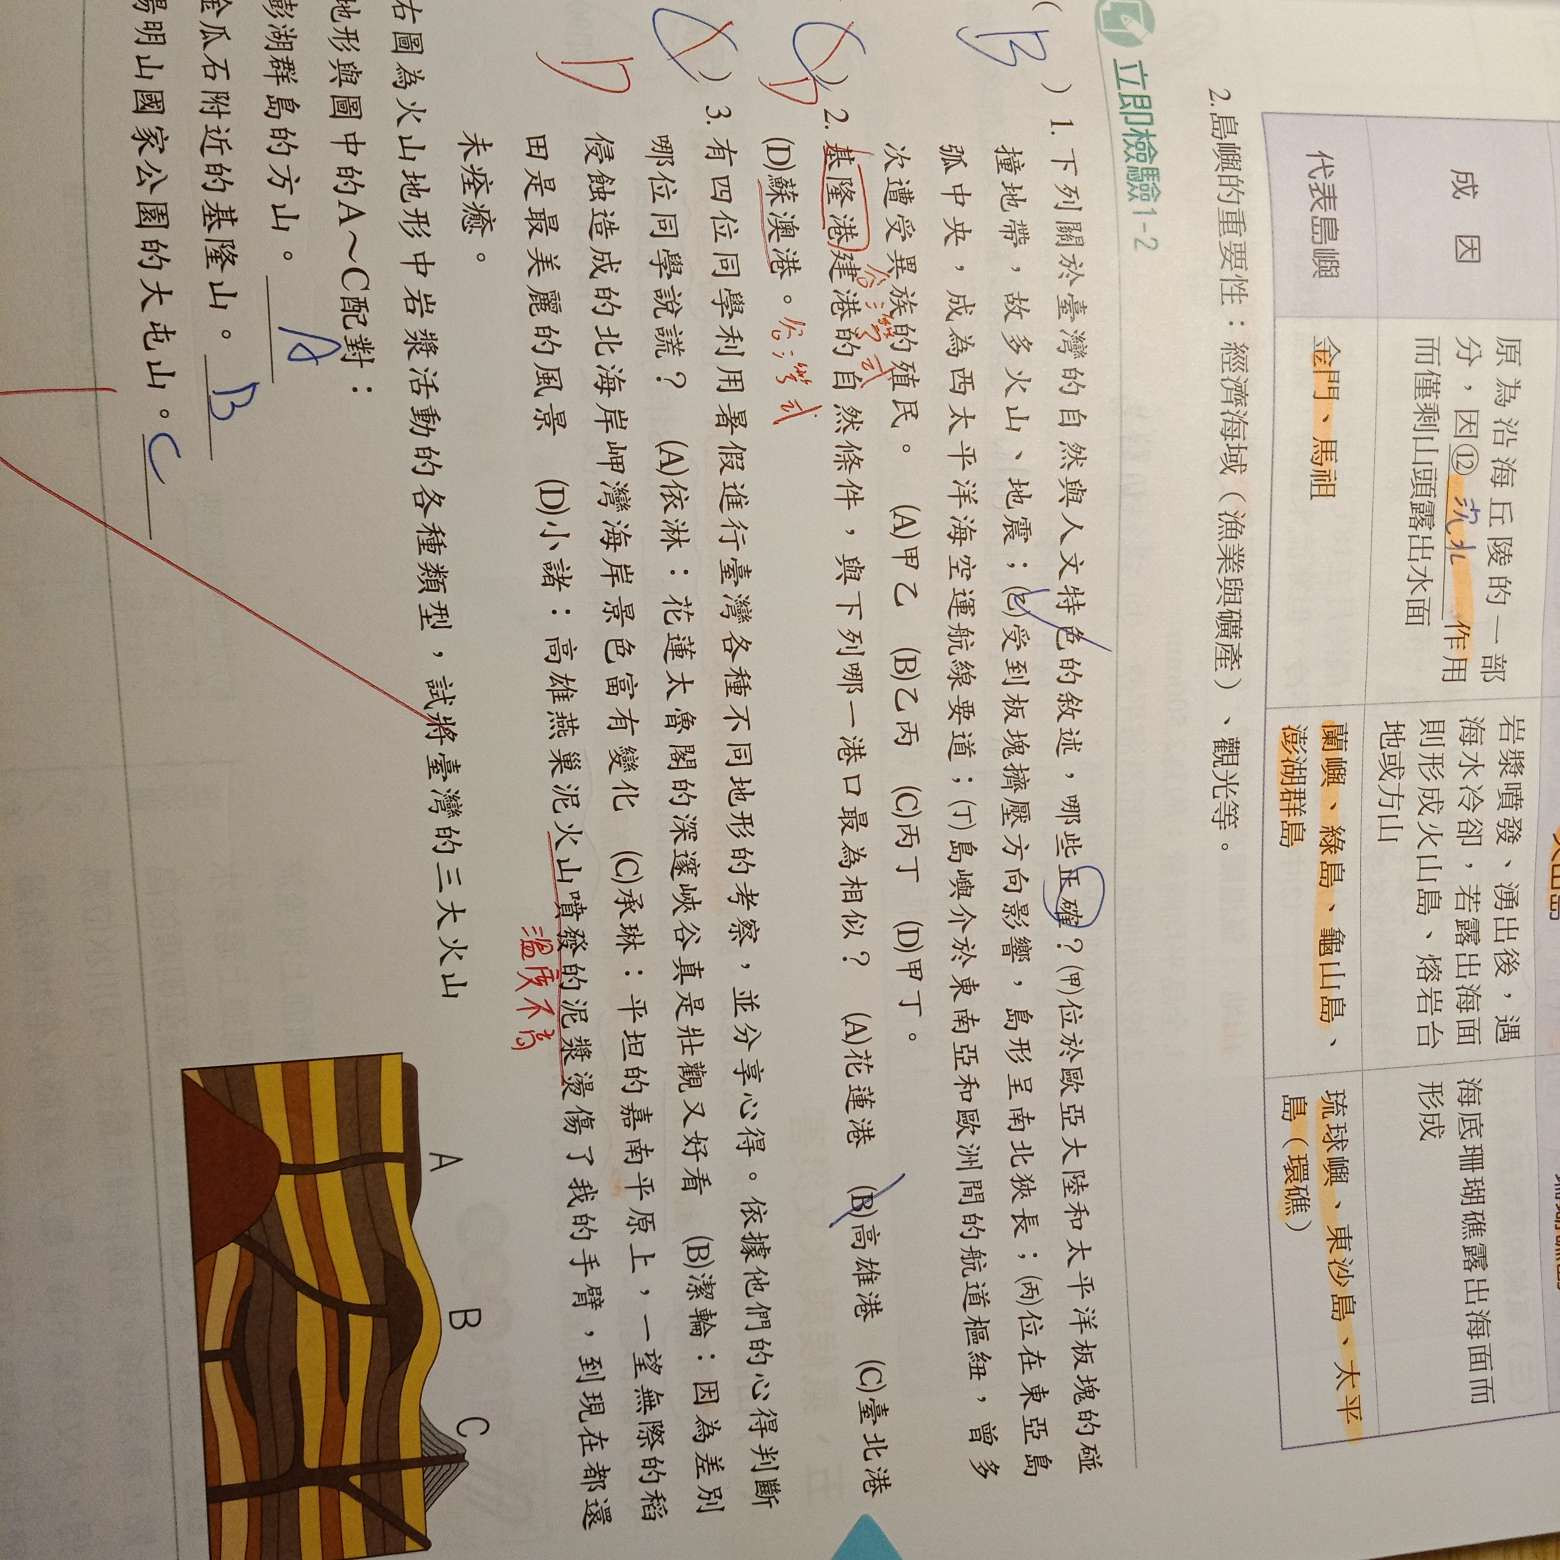 成 因
原為沿海丘陵的一部
分，因⑫ 沉水 作用
而僅剩山頭露出水面
岩漿噴發、湧出後，遇
海水冷卻，若露出海面
則形成火山島、熔岩台
地或方山
海底珊瑚礁露出海面而
形成
代表島嶼
金門、馬祖
蘭嶼、綠島、龜山島、
澎湖群島
琉球嶼、東沙島、太平
島（環礁）
2.島嶼的重要性：經濟海域（漁業與礦產）、觀光等。
立即檢驗1-2
( B ) 1. 下列關於臺灣的自然與人文特色的敘述，哪些正確？(甲)位於歐亞大陸和太平洋板塊的碰
撞地帶，故多火山、地震；(乙)受到板塊擠壓方向影響，島形呈南北狹長；(丙)位在東亞島
弧中央，成為西太平洋海空運航線要道；(丁)島嶼介於東南亞和歐洲間的航道樞紐，曾多
次遭受異族的殖民。 (A)甲乙 (B)乙丙 (C)丙丁 (D)甲丁。
谷灣式
D ) 2. 基隆港建港的自然條件，與下列哪一港口最為相似？ (A)花蓮港 (B)高雄港 (C)臺北港
(D)蘇澳港。 谷灣式
) 3. 有四位同學利用暑假進行臺灣各種不同地形的考察，並分享心得。依據他們的心得判斷
D
哪位同學說謊？ (A)依淋：花蓮太魯閣的深邃峽谷真是壯觀又好看 (B)潔輪：因為差別
侵蝕造成的北海岸岬灣海岸景色富有變化 (C)承琳：平坦的嘉南平原上，一望無際的稻
田是最美麗的風景 (D)小諸：高雄燕巢泥火山噴發的泥漿燙傷了我的手臂，到現在都還
溫度不高
未痊癒。
右圖為火山地形中岩漿活動的各種類型，試將臺灣的三大火山
地形與圖中的A～C配對：
澎湖群島的方山。 A
金瓜石附近的基隆山。 B
陽明山國家公園的大屯山。 C
A
B
C